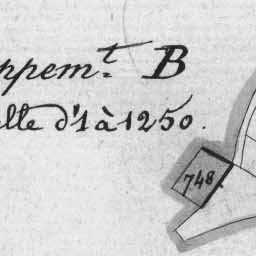 ppem.t B
elle d'1 à 1250.
748